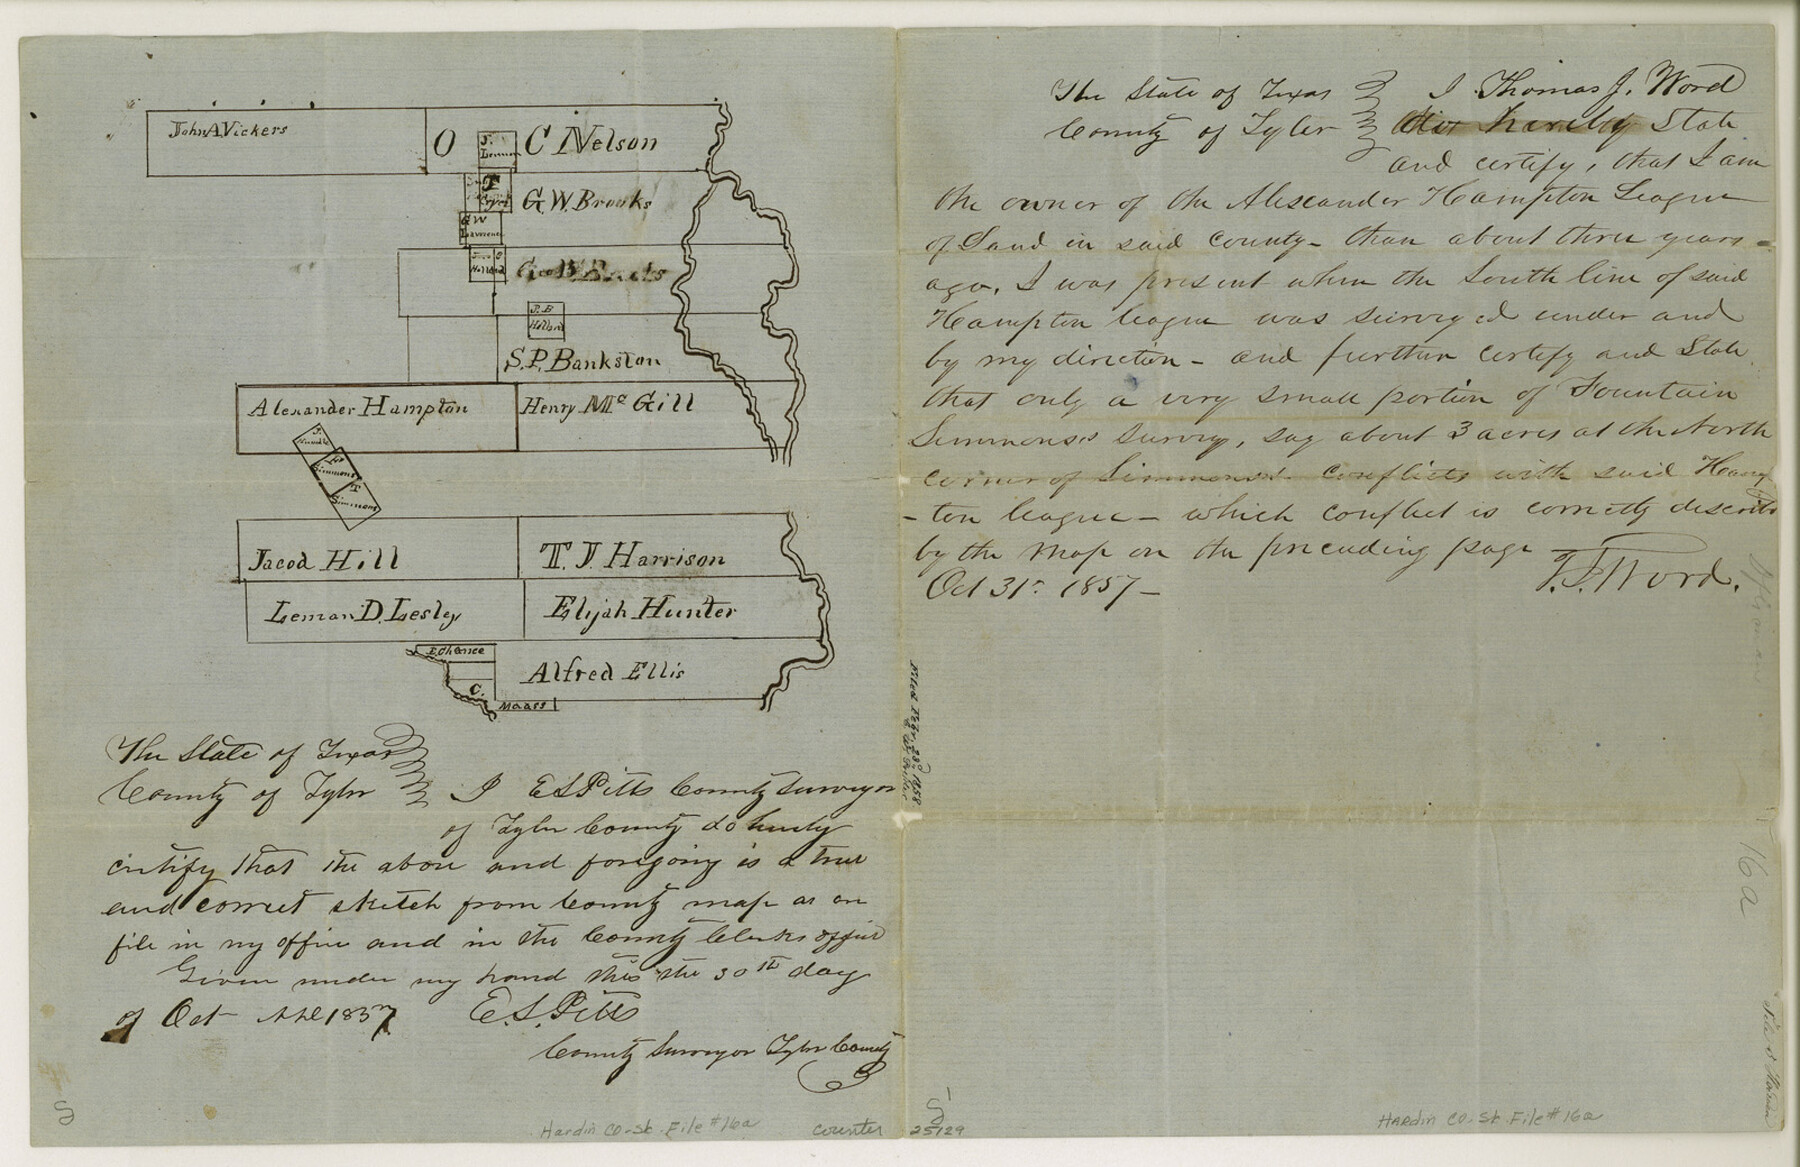 John A. Vickers
O C Nelson
J.
G. W. Brooks
G W
Lawrence
Holland
J. B
Holland
S. P. Bankston
Alexander Hampton
Henry Mc Gill
J.
F
Simmons
T
Simmons
Jacod Hill
T. J. Harrison
Leman D. Lesley
Elijah Hunter
E. Chance
Alfred Ellis
C.
Maass
The State of Texas
County of Tyler I E S Pitts County Surveyor
of Tyler County do hereby
certify that the above and foregoing is a true
and correct sketch from County map as on
file in my office and in the County Clerks office
Given under my hand this the 30th day
of Oct A D 1857 E. S. Pitts
County Surveyor Tyler County
The State of Texas I Thomas J. Word
County of Tyler do hereby State
and certify, that I am
the owner of the Alexander Hampton League
of Land in said county - than about three years -
ago, I was present when the South line of said
Hampton league was surveyed under and
by my direction - and further certify and State
that only a very small portion of Fountain
Simmons's survey, say about 3 acres at the North
corner of Simmons's conflicts with said Hamp
- ton league - which conflict is correctly describd
by the map on the preceeding page
Oct 31st 1857 - T. J. Word.
Filed Feby. 23d 1858
16a
Hardin Co. Sk. File #16a
counter 25129
Hardin Co. Sk. File #16a